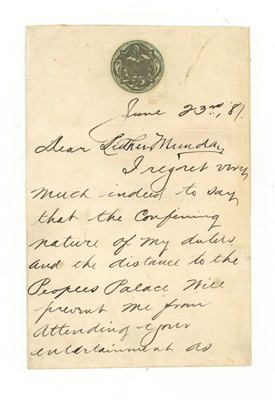 June 23rd, 87.
Dear Luther Munday,
I regret very
much indeed to say
that the Confining
nature of my duties
and the distance to the
Peoples Palace Will
prevent me from
attending your
entertainment as